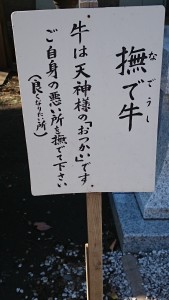 撫で牛
なでうし
牛は天神様の「おつかい」です。
ご自身の悪い所を撫でて下さい
(良くなりたい所)